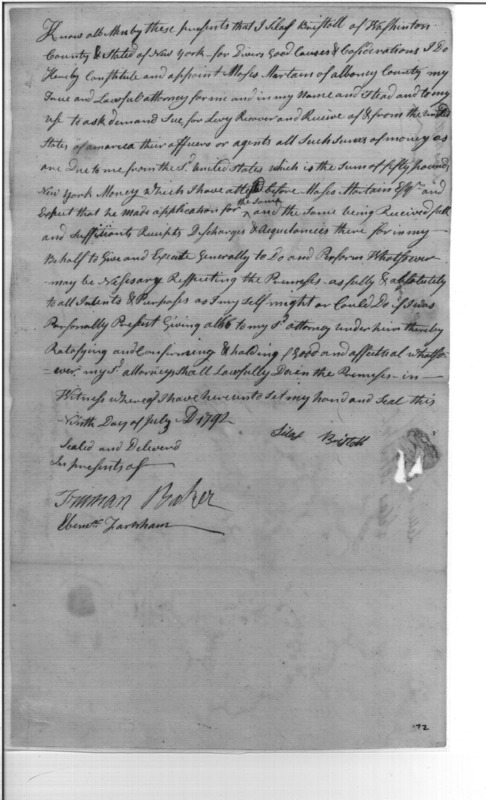 Know all Men by these presents that I Silas Bristoll of Washinton
County & State of New York for Divers Good Causes & Considerations I Do
Hereby Constitute and appoint Moses Martain of albony County my
True and Lawful attorney for me and in my Name and Stead and to my
use to ask demand Sue for Levy Recover and Recive of & from the united
States of amaraca their officers or agents all Such Sums of money as
are Due to me from the Sd United States which is the Sum of fifty pounds
New York Money which I have before Moses Martain Esqr and
Expect that he made application for the Same and the Same being Received full
and Suffitiant Recepts Discharges & Acquetances there for in my
Behalf to Give and Execute Generally to Do and Perform Whatsoever
may be Nessesary Respecting the Premeses as fully & absolutely
to all Intents & Purposes as I my Self might or Could Do if I was
Personally Present Giving all to my Sd attorney under him thereby
Ratifying and Confirming & holding Good and affectual whatso-
-ever my Sd attorney Shall Lawfully Do in the Premeses - in
Witness whereof I have here unto Set my hand and Seal this
Ninth Day of July AD 1792
Silas Bristoll
Sealed and Deliverd
In presents of
Truman Baker
Ebenr Farnham
72